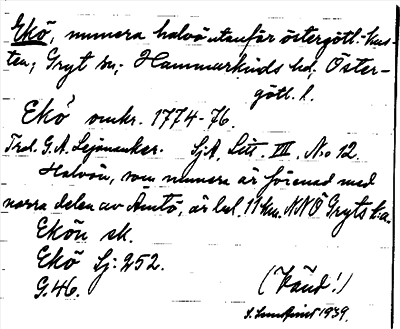 Ekö, numera halvö utanför östergötl. kus-
ten, Gryt sn, Hammarkinds hd, Öster-
götl. l.
Ekö omkr. 1774-76.
Trol. G. A. SjA, Litt. III, No 12.
Halvön, som numera är förenad med
norra delen av Ämtö, är bel. 11 km. NNÖ Gryts k:a.
Ekön ek.
Ekö Sj: 252.
G. 46.
(Vänd!)
1939.